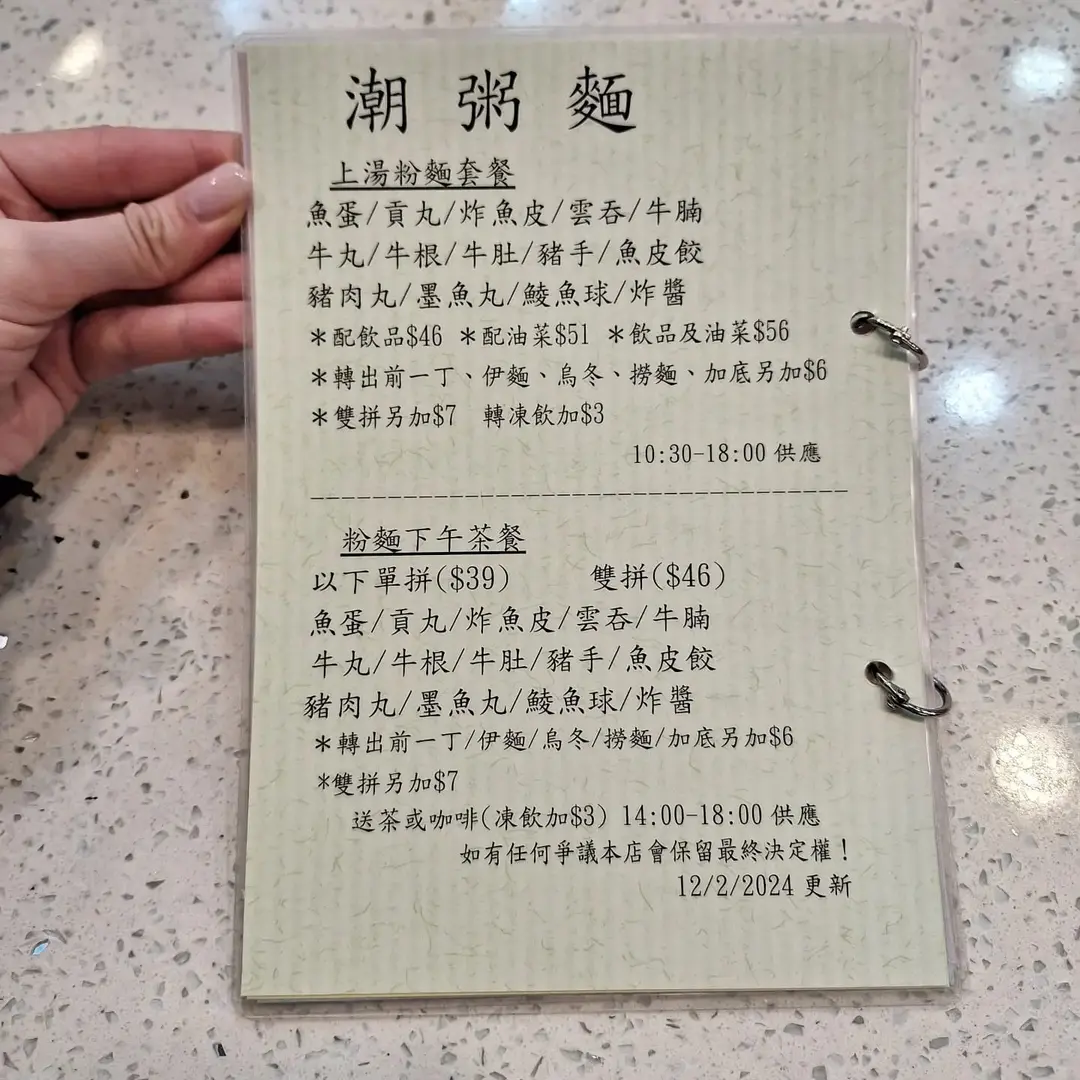 潮 粥 麵
上湯粉麵套餐
魚蛋/貢丸/炸魚皮/雲吞/牛腩
牛丸/牛根/牛肚/豬手/魚皮餃
豬肉丸/墨魚丸/鯪魚球/炸醬
*配飲品$46 *配油菜$51 *飲品及油菜$56
*轉出前一丁、伊麵、烏冬、撈麵、加底另加$6
*雙拼另加$7 轉凍飲加$3
10:30-18:00 供應
粉麵下午茶餐
以下單拼($39) 雙拼($46)
魚蛋/貢丸/炸魚皮/雲吞/牛腩
牛丸/牛根/牛肚/豬手/魚皮餃
豬肉丸/墨魚丸/鯪魚球/炸醬
*轉出前一丁/伊麵/烏冬/撈麵/加底另加$6
*雙拼另加$7
送茶或咖啡(凍飲加$3) 14:00-18:00 供應
如有任何爭議本店會保留最終決定權！
12/2/2024 更新